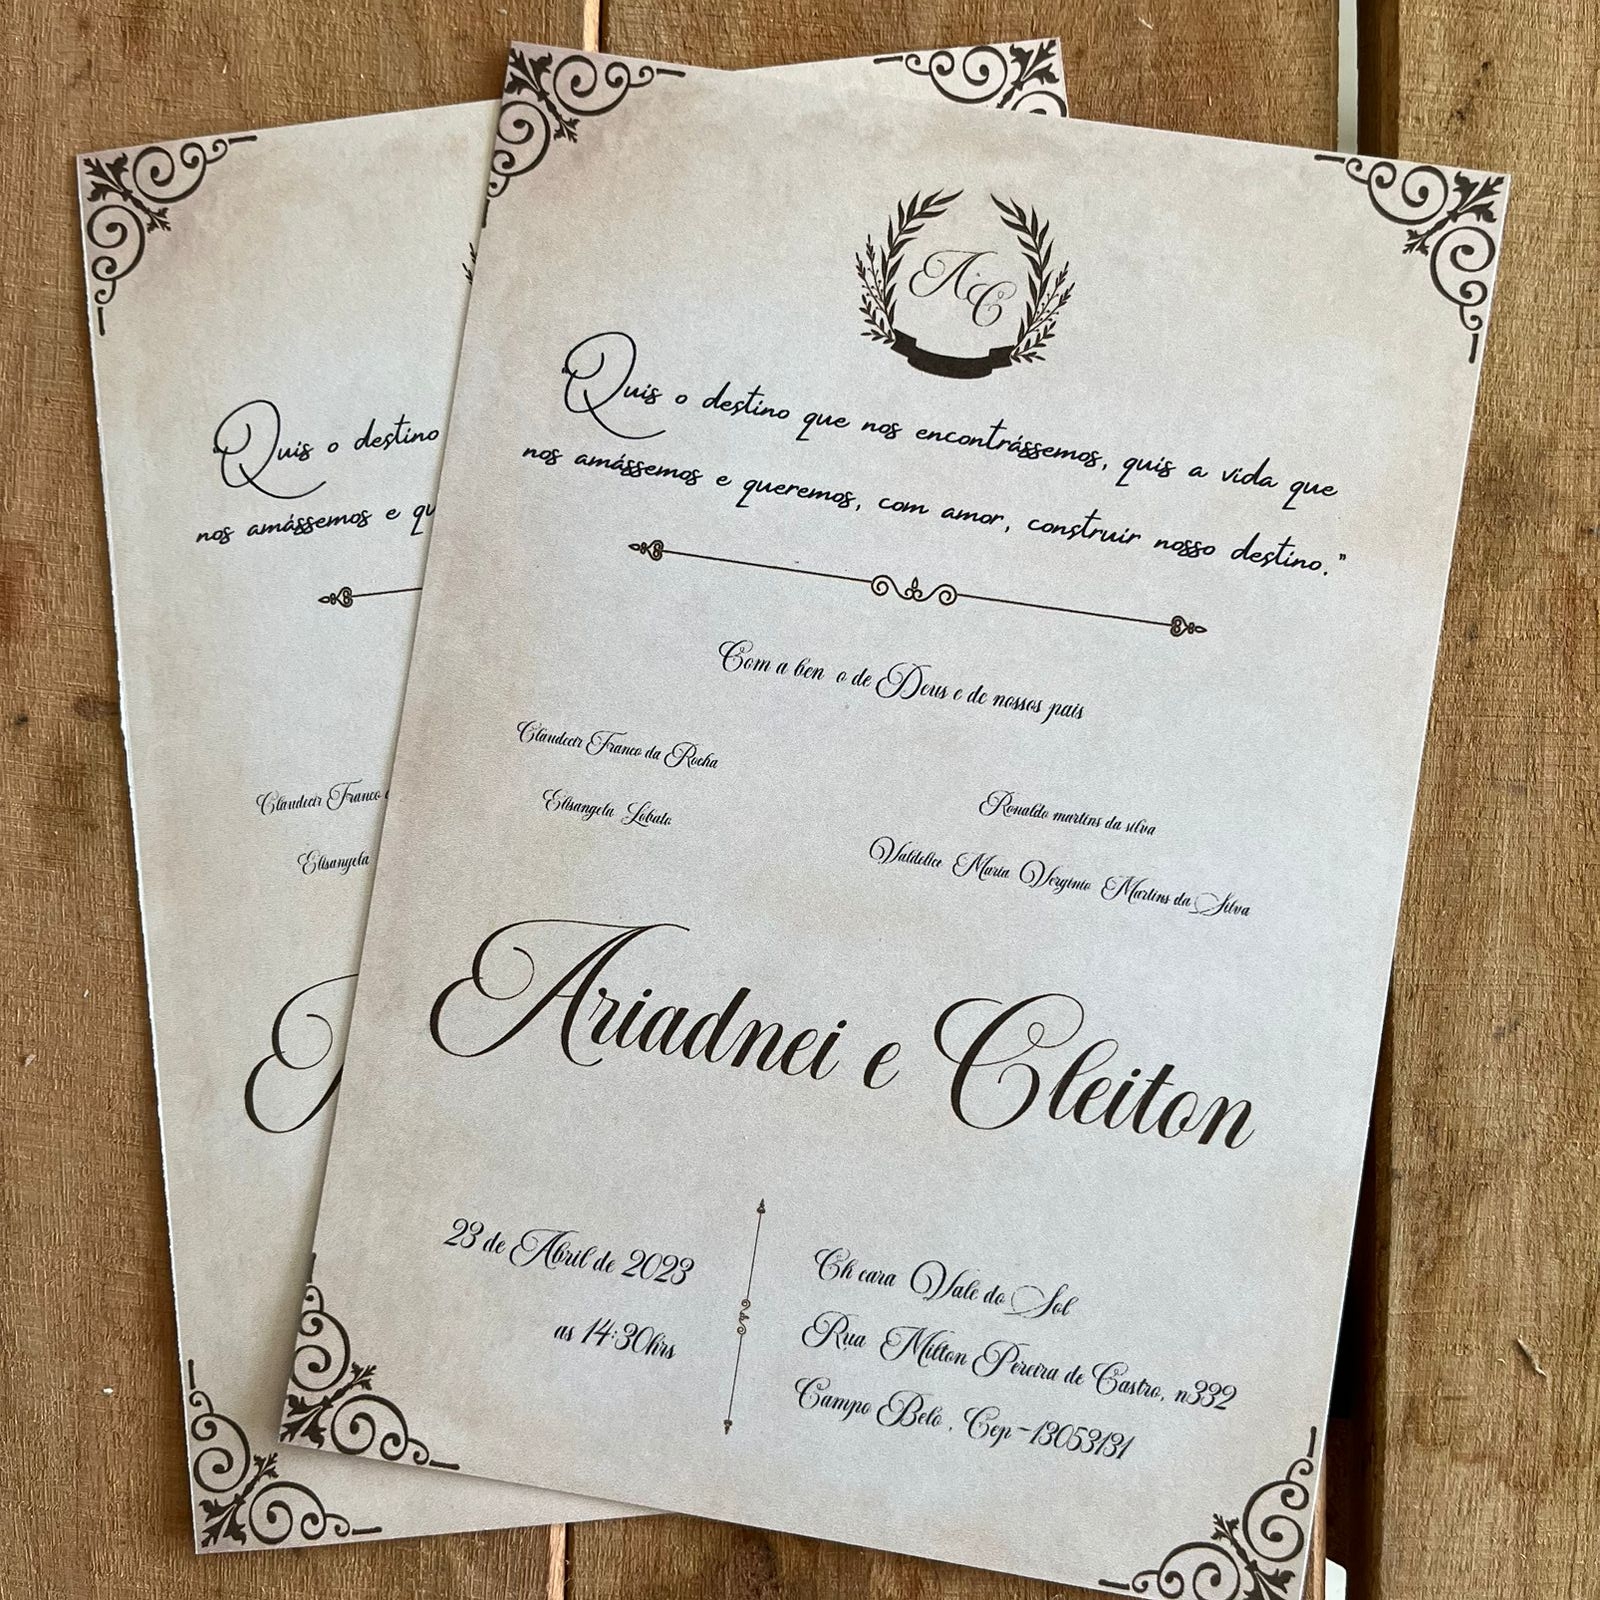 A·C
"Quis o destino que nos encontrássemos, quis a vida que
nos amássemos e queremos, com amor, construir nosso destino."
Com a ben o de Deus e de nossos pais
Claudecir Franco da Rocha
Elisangela Lobato
Ronaldo martins da silva
Valdelice Maria Verginio Martins da Silva
Ariadnei e Cleiton
23 de Abril de 2023
as 14:30hrs
Ch cara Vale do Sol
Rua Milton Pereira de Castro, n332
Campo Belo, Cep-13053131
"Quis o destino
nos amássemos e qu
Claudecir Franco
Elisangela